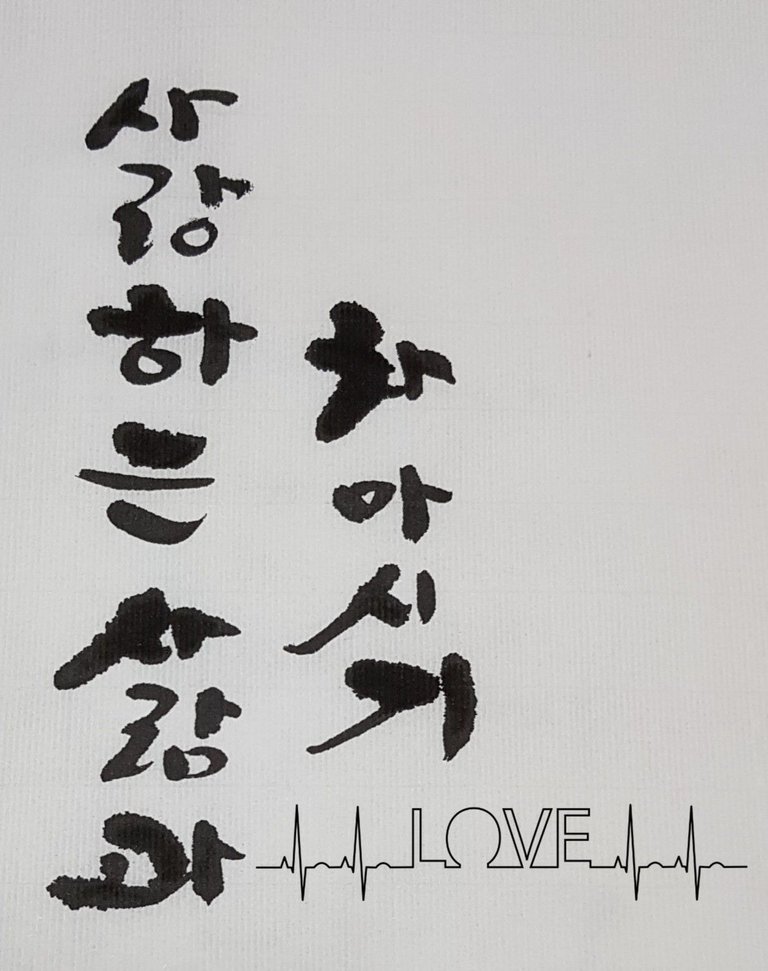 사랑하는 사람과
차 마시기
LOVE